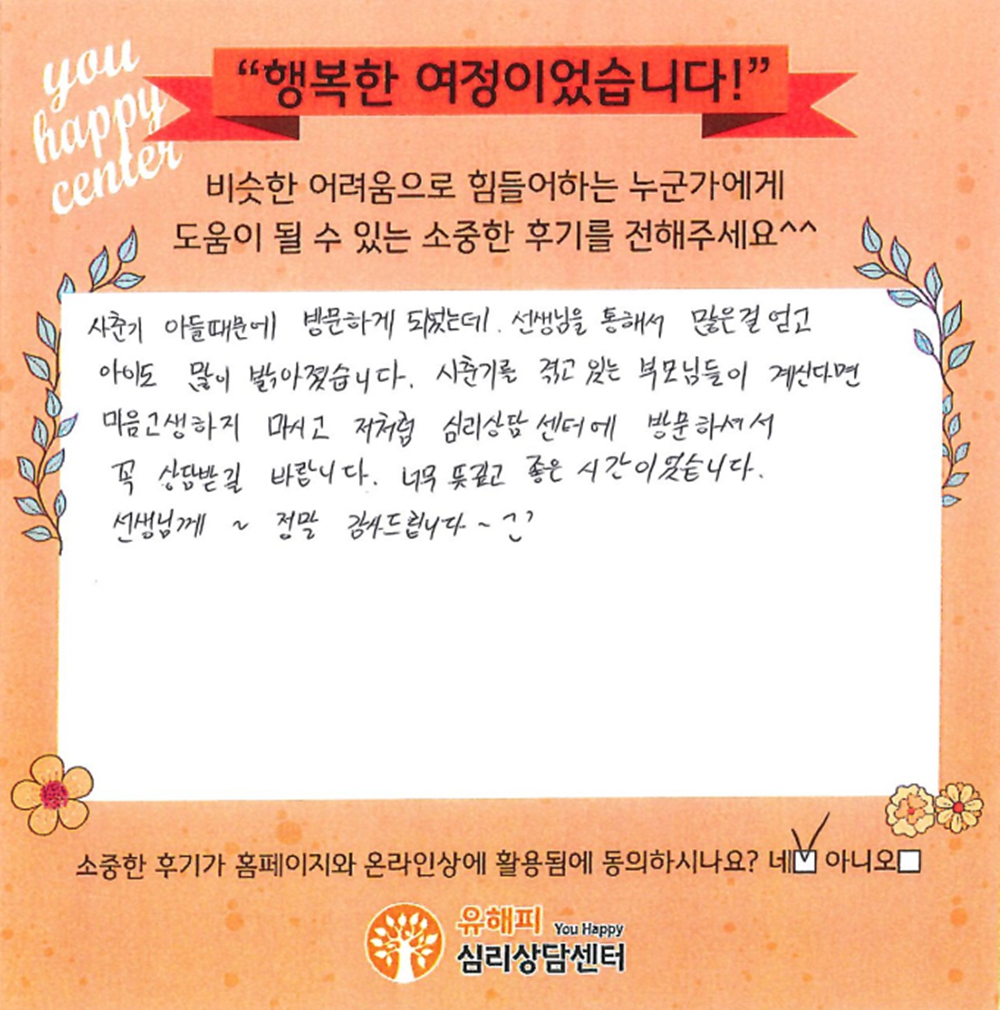 you
happy
center
“행복한 여정이었습니다!”
비슷한 어려움으로 힘들어하는 누군가에게
도움이 될 수 있는 소중한 후기를 전해주세요^^
사춘기 아들때문에 방문하게 되었는데. 선생님을 통해서 많은걸 얻고
아이도 많이 밝아졌습니다. 사춘기를 겪고 있는 부모님들이 계신다면
마음고생하지 마시고 저처럼 심리상담센터에 방문하셔서
꼭 상담받길 바랍니다. 너무 뜻깊고 좋은 시간이었습니다.
선생님께 ~ 정말 감사드립니다~
소중한 후기가 홈페이지와 온라인상에 활용됨에 동의하시나요? 네 아니오
유해피 You Happy
심리상담센터